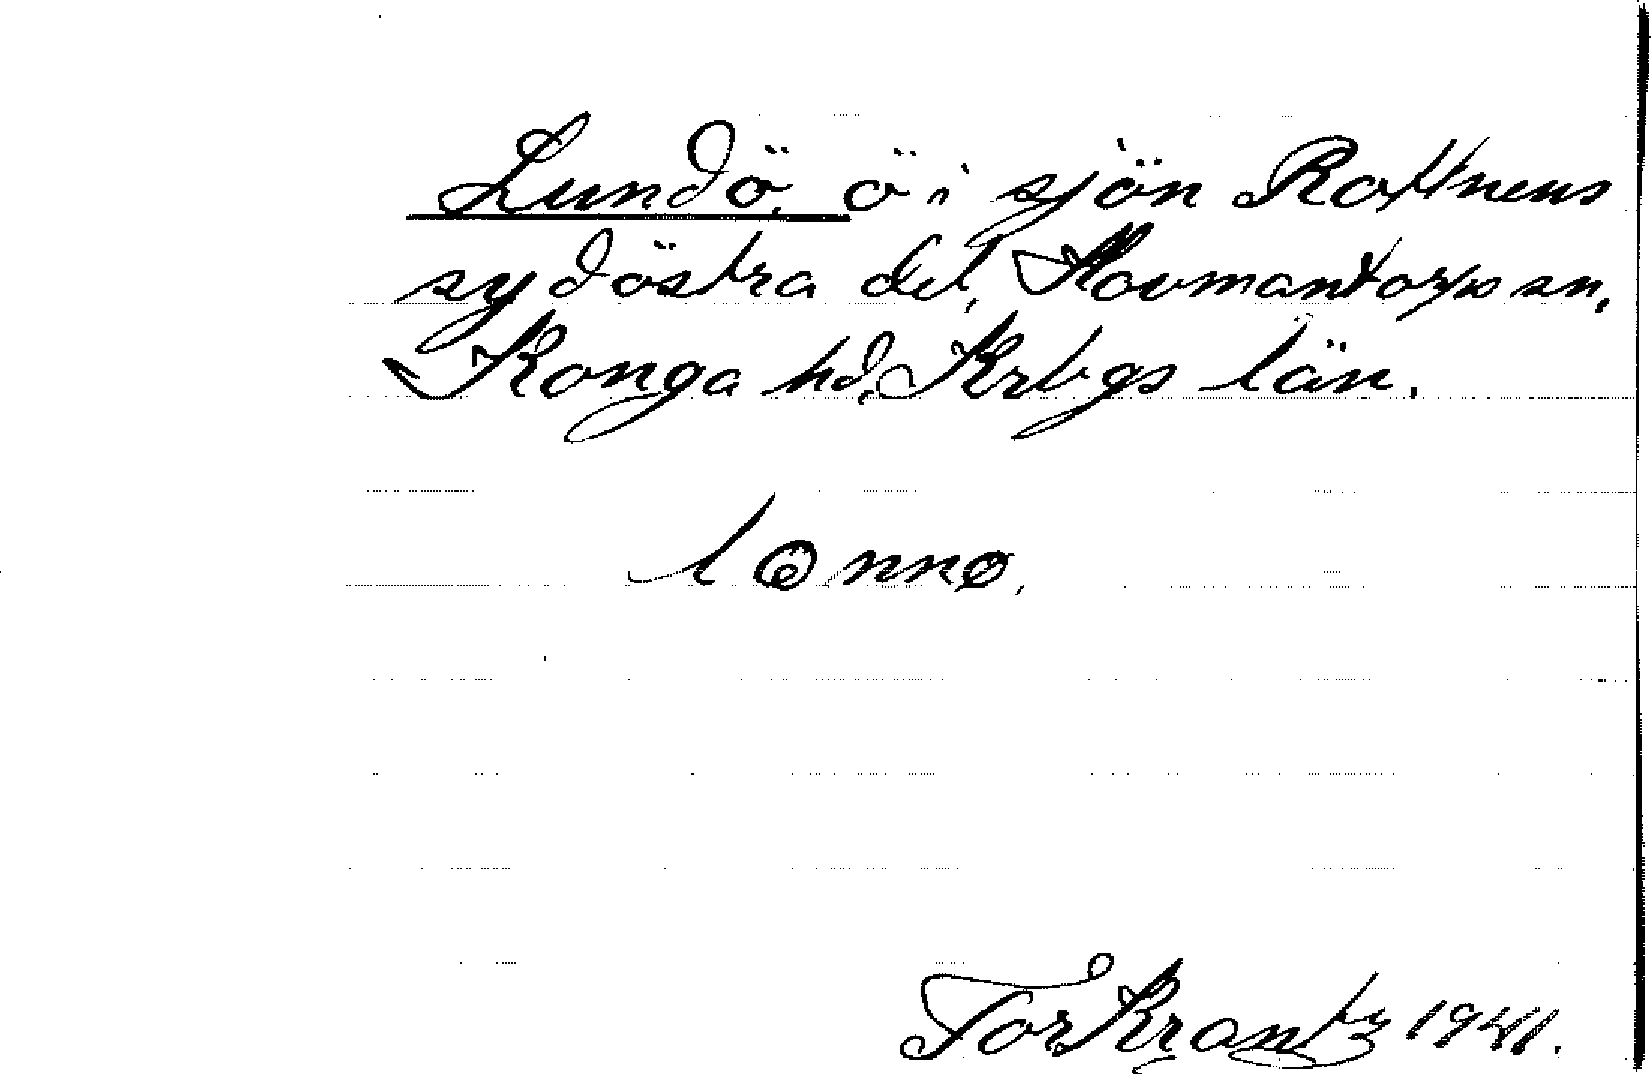 Lundö, ö i sjön Rottnens
sydöstra del, Hovmantorps sn,
Konga hd, Krbgs län.
Tor Krantz 1941.